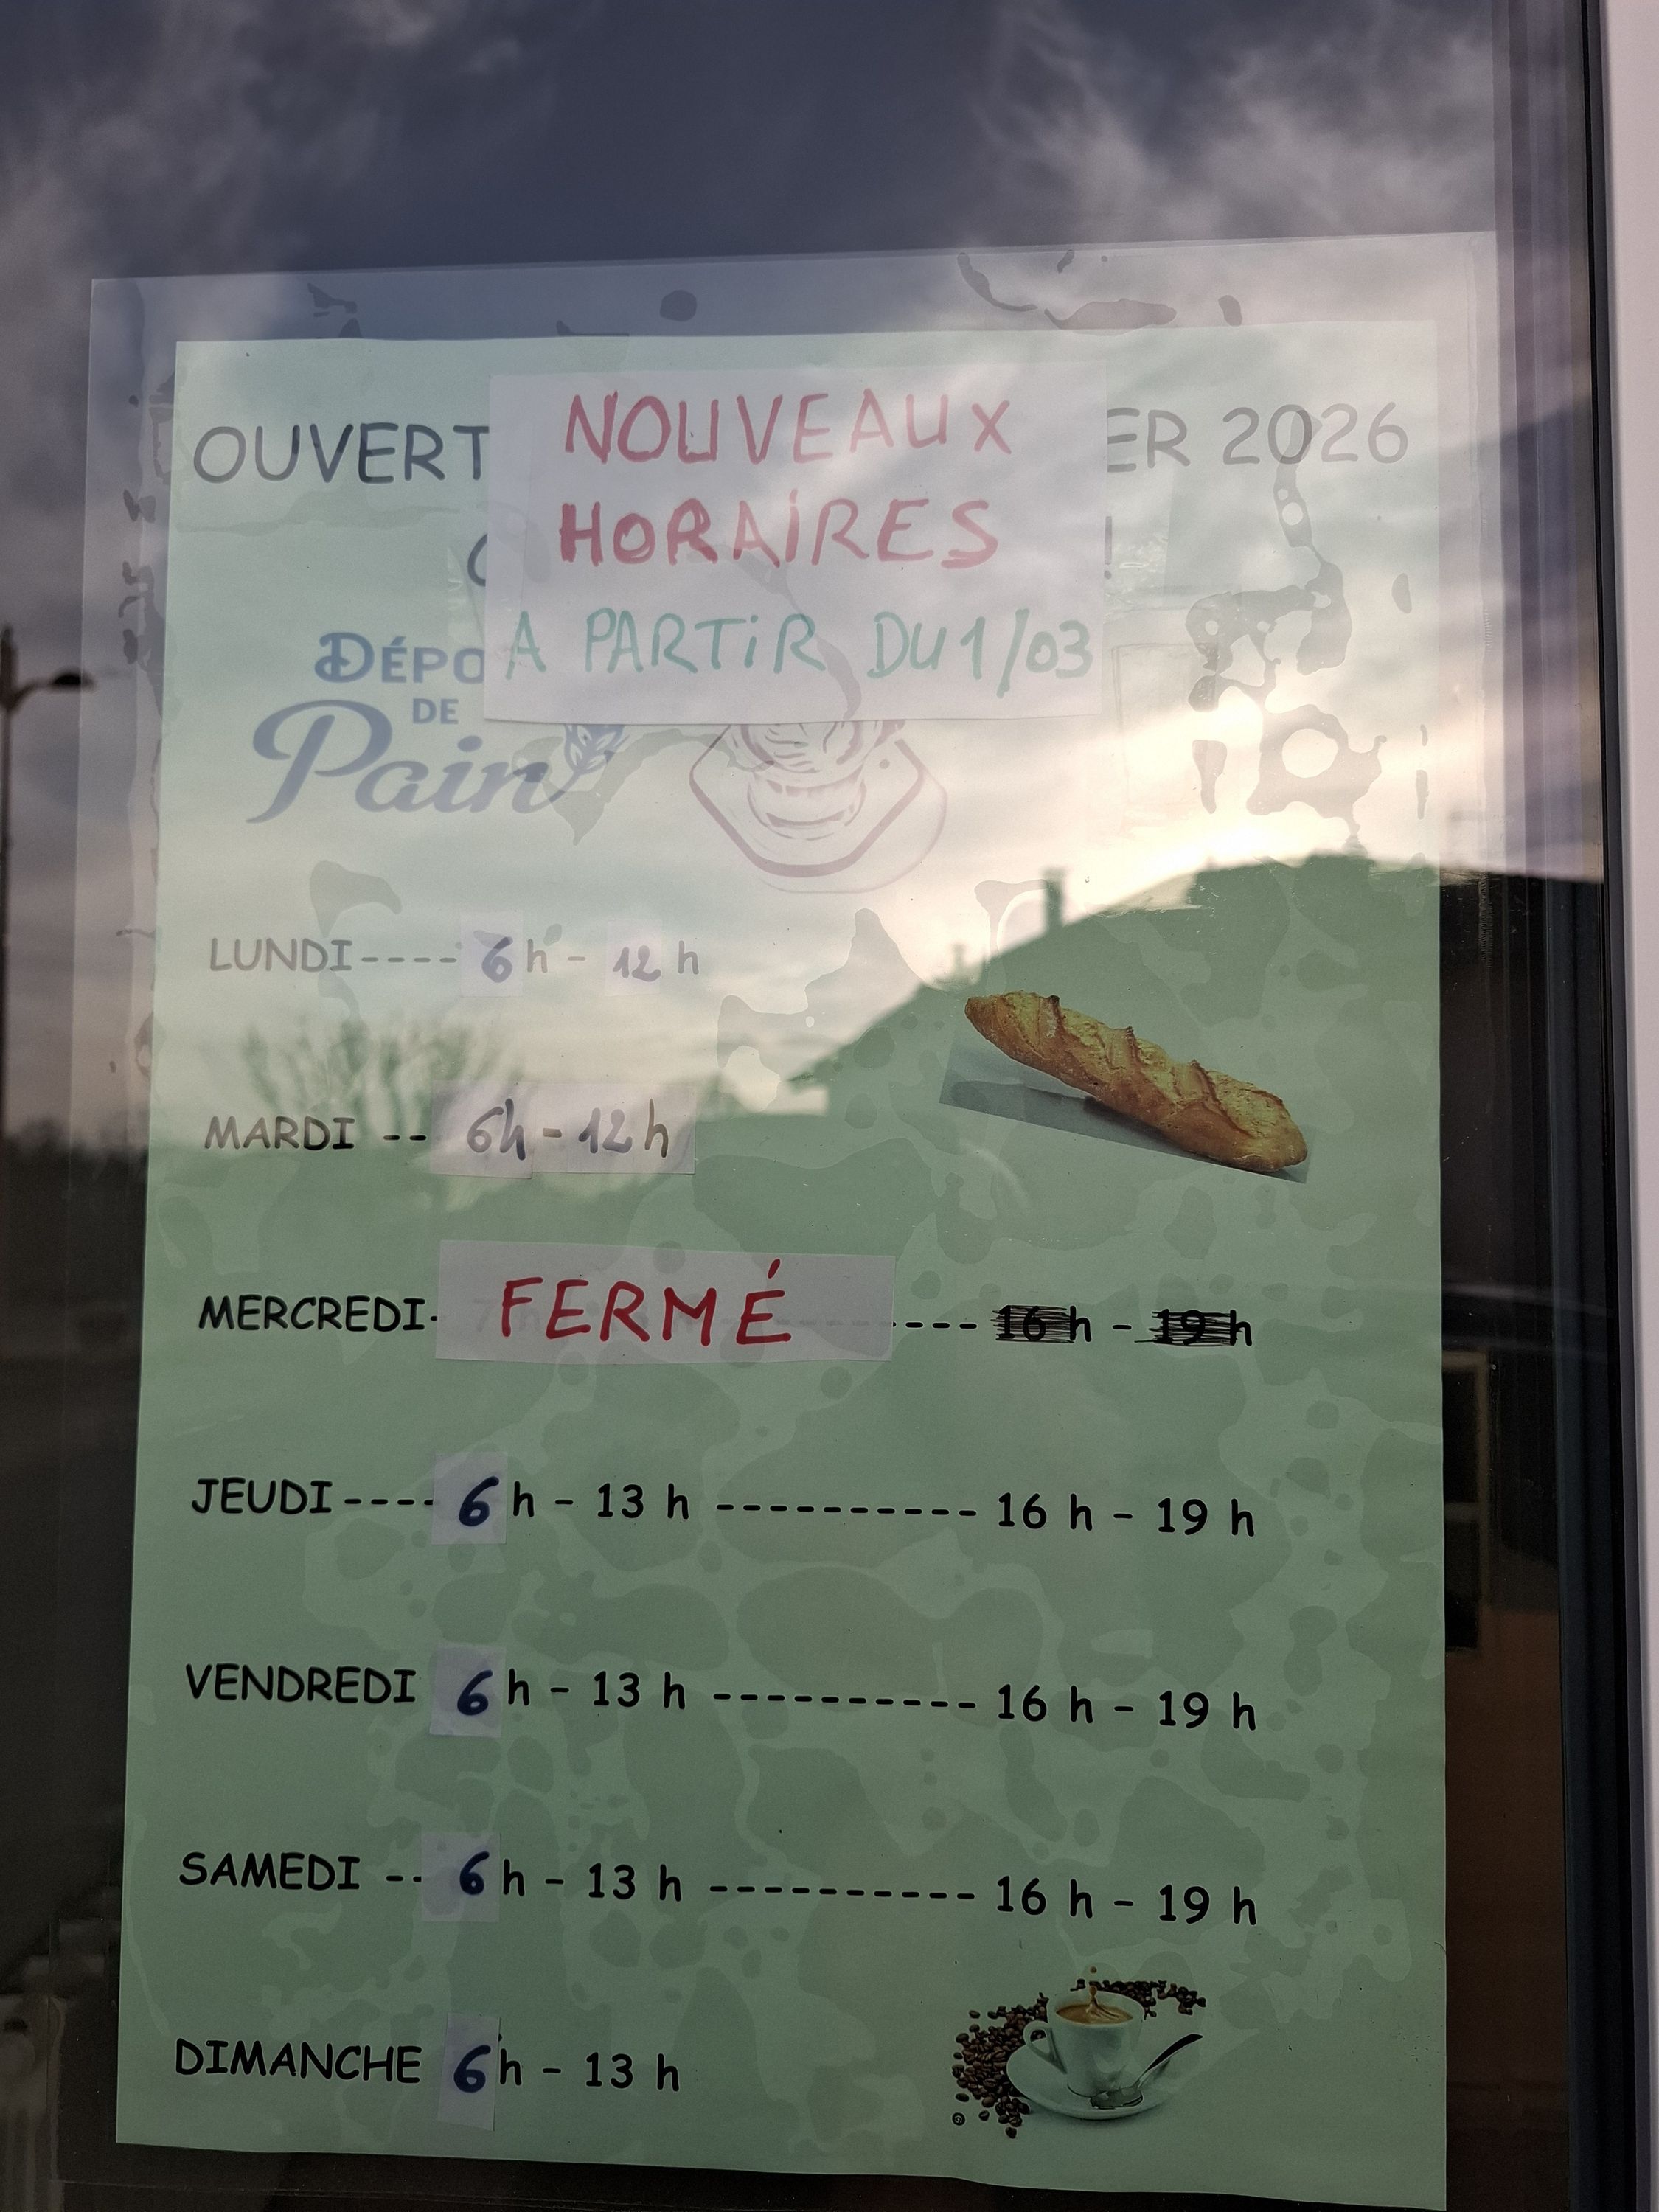 OUVERT NOUVEAUX ER 2026
HORAIRES
A PARTIR DU 1/03
DÉPO
DE
Pain
LUNDI---- 6 h - 12 h
MARDI -- 6h - 12h
MERCREDI- FERMÉ ---- 16 h - 19 h
JEUDI---- 6 h - 13 h ---------- 16 h - 19 h
VENDREDI 6 h - 13 h ---------- 16 h - 19 h
SAMEDI -- 6 h - 13 h ---------- 16 h - 19 h
DIMANCHE 6 h - 13 h